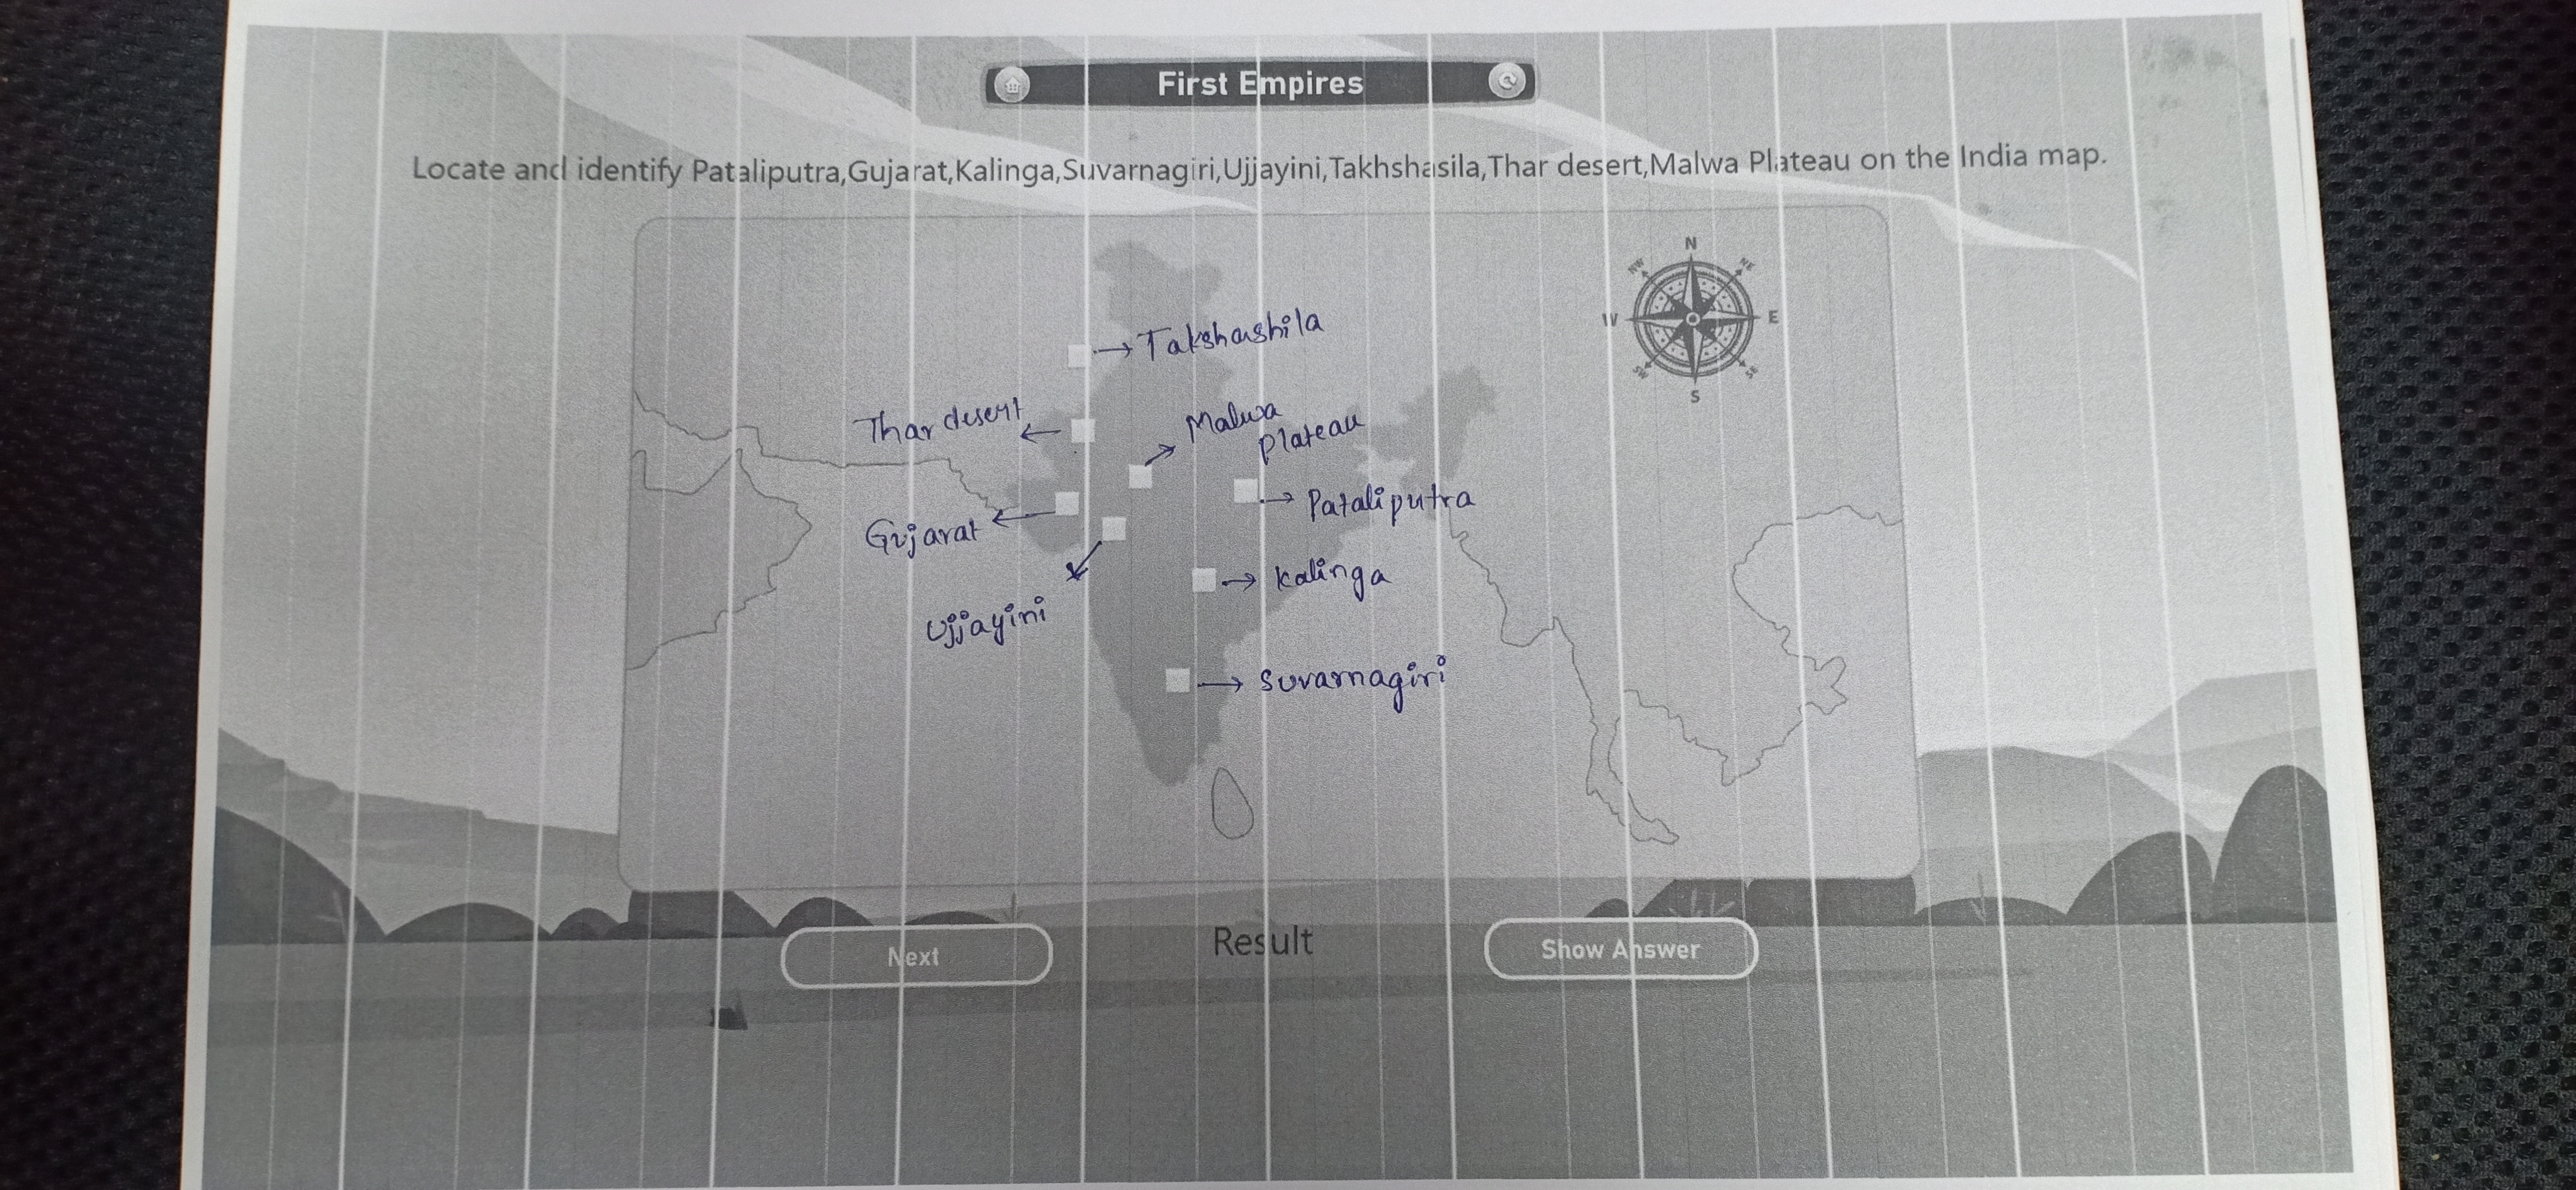 First Empires
Locate and identify Pataliputra,Gujarat,Kalinga,Suvarnagiri,Ujjayini,Takhshasila,Thar desert,Malwa Plateau on the India map.
N
NW
NE
W
E
SW
SE
S
Takshashila
Thar desert
Malwa
Plateau
Pataliputra
Gujarat
Kalinga
Ujjayini
Suvarnagiri
Next
Result
Show Answer